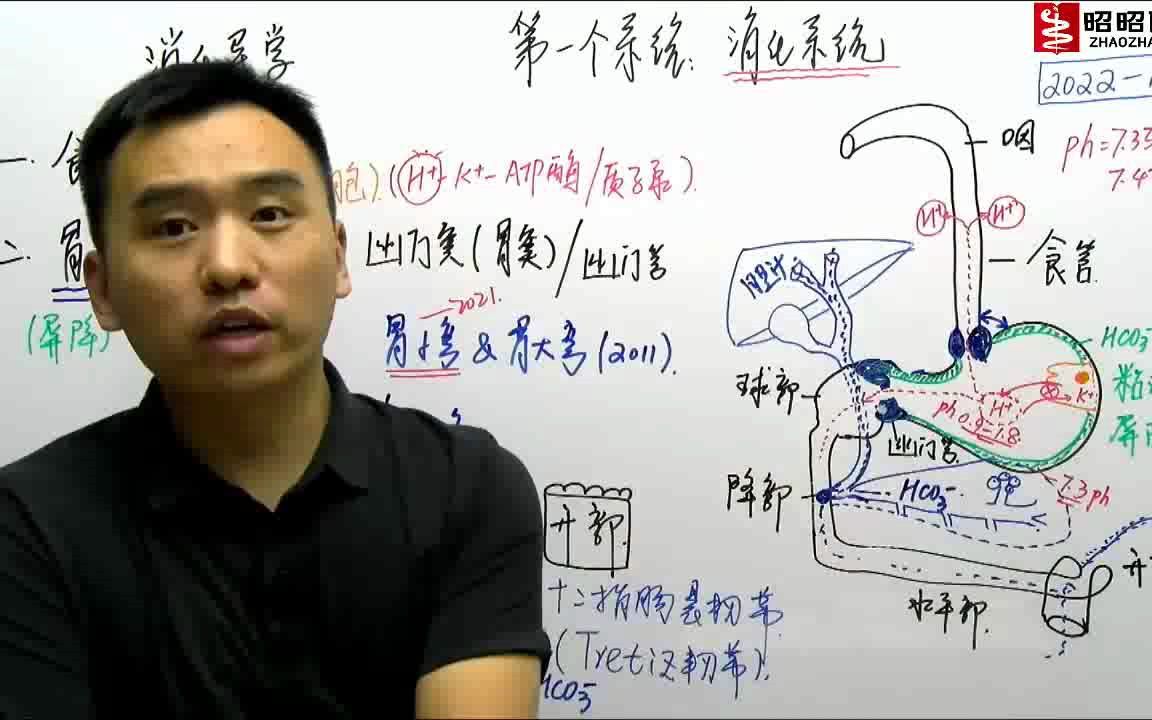 第一个系统: 消化系统
昭昭
ZHAOZHA
2022-
咽
ph=7.35
7.4
一. 食
胞) (H+-K+-ATP酶/质子泵).
H+
H+
二. 胃
幽门窦(胃窦)/幽门管
食管
(屏障)
2021.
胃小弯 & 胃大弯 (2011).
胆汁
HCO3-
粘
屏
球部
H+
K+
ph 0.9-1.8
幽门管
降部
HCO3-
7.3 ph
升部
升
十二指肠悬韧带
水平部
(Treitz韧带).
HCO3-